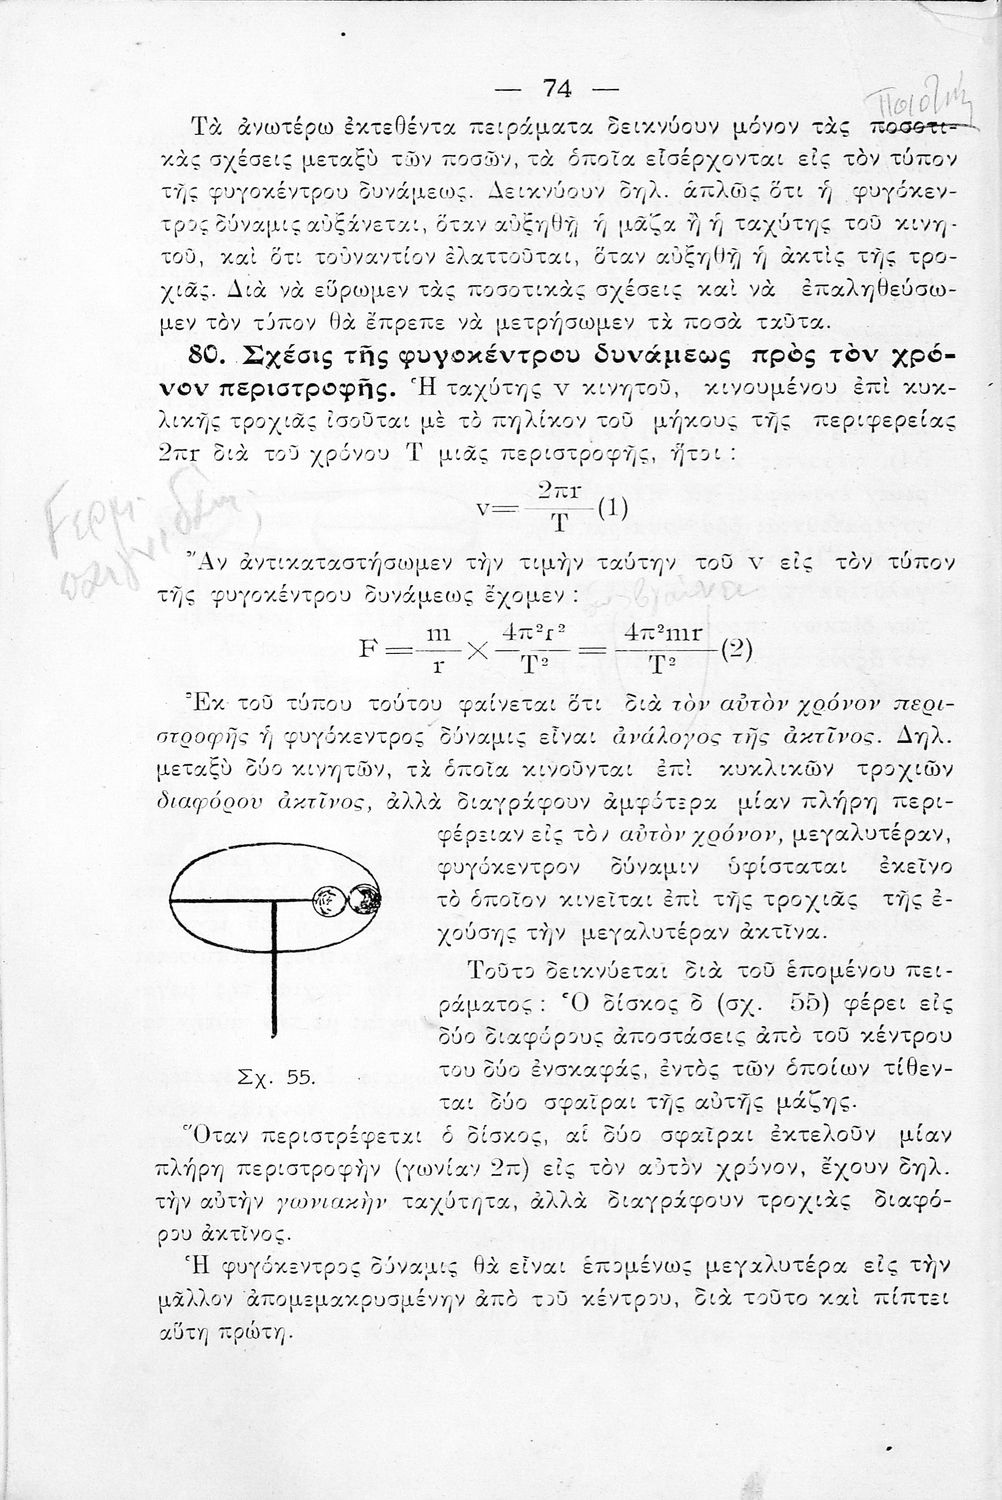 — 74 —
Τὰ ἀνωτέρω ἐκτεθέντα πειράματα δεικνύουν μόνον τὰς ποσοτι-
κὰς σχέσεις μεταξὺ τῶν ποσῶν, τὰ ὁποῖα εἰσέρχονται εἰς τὸν τύπον
τῆς φυγοκέντρου δυνάμεως. Δεικνύουν δηλ. ἁπλῶς ὅτι ἡ φυγόκεν-
τρος δύναμις αὐξάνεται, ὅταν αὐξηθῇ ἡ μᾶζα ἢ ἡ ταχύτης τοῦ κινη-
τοῦ, καὶ ὅτι τοὐναντίον ἐλαττοῦται, ὅταν αὐξηθῇ ἡ ἀκτὶς τῆς τρο-
χιᾶς. Διὰ νὰ εὕρωμεν τὰς ποσοτικὰς σχέσεις καὶ νὰ ἐπαληθεύσω-
μεν τὸν τύπον θὰ ἔπρεπε νὰ μετρήσωμεν τὰ ποσὰ ταῦτα.
80. Σχέσις τῆς φυγοκέντρου δυνάμεως πρὸς τὸν χρό-
νον περιστροφῆς. Ἡ ταχύτης v κινητοῦ, κινουμένου ἐπὶ κυκ-
λικῆς τροχιᾶς ἰσοῦται μὲ τὸ πηλίκον τοῦ μήκους τῆς περιφερείας
2πr διὰ τοῦ χρόνου T μιᾶς περιστροφῆς, ἤτοι :
v = 2πr / T (1)
Ἂν ἀντικαταστήσωμεν τὴν τιμὴν ταύτην τοῦ v εἰς τὸν τύπον
τῆς φυγοκέντρου δυνάμεως ἔχομεν :
F = m / r × 4π²r² / T² = 4π²mr / T² (2)
Ἐκ τοῦ τύπου τούτου φαίνεται ὅτι διὰ τὸν αὐτὸν χρόνον περι-
στροφῆς ἡ φυγόκεντρος δύναμις εἶναι ἀνάλογος τῆς ἀκτῖνος. Δηλ.
μεταξὺ δύο κινητῶν, τὰ ὁποῖα κινοῦνται ἐπὶ κυκλικῶν τροχιῶν
διαφόρου ἀκτῖνος, ἀλλὰ διαγράφουν ἀμφότερα μίαν πλήρη περι-
φέρειαν εἰς τὸν αὐτὸν χρόνον, μεγαλυτέραν,
φυγόκεντρον δύναμιν ὑφίσταται ἐκεῖνο
τὸ ὁποῖον κινεῖται ἐπὶ τῆς τροχιᾶς τῆς ἐ-
χούσης τὴν μεγαλυτέραν ἀκτῖνα.
Τοῦτο δεικνύεται διὰ τοῦ ἑπομένου πει-
ράματος : Ὁ δίσκος δ (σχ. 55) φέρει εἰς
δύο διαφόρους ἀποστάσεις ἀπὸ τοῦ κέντρου
του δύο ἐνσκαφάς, ἐντὸς τῶν ὁποίων τίθεν-
ται δύο σφαῖραι τῆς αὐτῆς μάζης.
Σχ. 55.
Ὅταν περιστρέφεται ὁ δίσκος, αἱ δύο σφαῖραι ἐκτελοῦν μίαν
πλήρη περιστροφὴν (γωνίαν 2π) εἰς τὸν αὐτὸν χρόνον, ἔχουν δηλ.
τὴν αὐτὴν γωνιακὴν ταχύτητα, ἀλλὰ διαγράφουν τροχιὰς διαφό-
ρου ἀκτῖνος.
Ἡ φυγόκεντρος δύναμις θὰ εἶναι ἑπομένως μεγαλυτέρα εἰς τὴν
μᾶλλον ἀπομεμακρυσμένην ἀπὸ τοῦ κέντρου, διὰ τοῦτο καὶ πίπτει
αὕτη πρώτη.